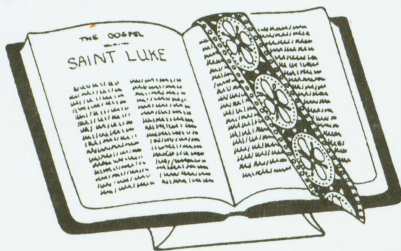 THE GOSPEL
SAINT LUKE